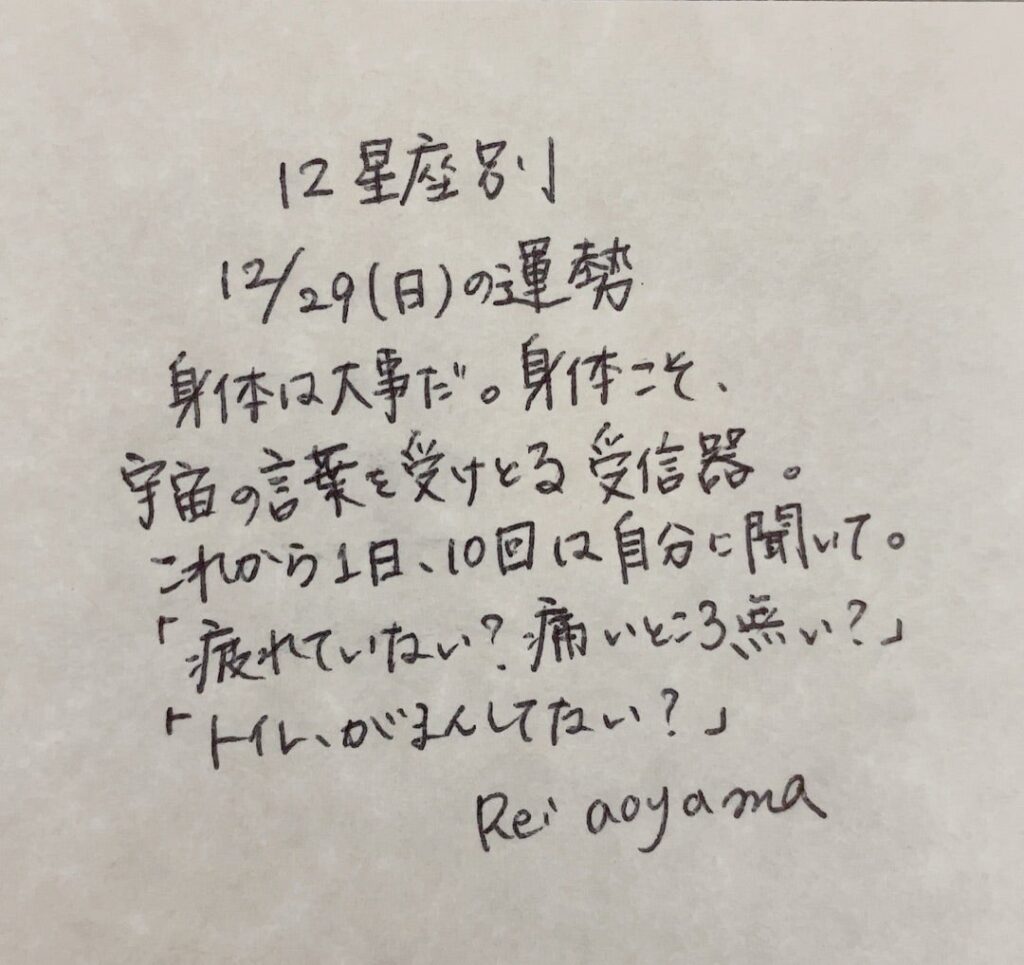 12星座別
12/29(日)の運勢
身体は大事だ。身体こそ、
宇宙の言葉を受けとる受信器。
これから1日、10回は自分に聞いて。
「疲れていない?痛いところ無い?」
「トイレ、がまんしてない?」
Rei aoyama